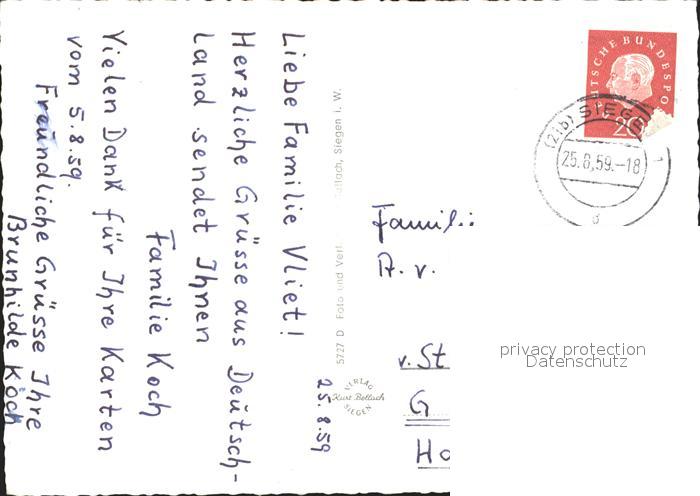 25.8.59
Liebe Familie Vliet!
Herzliche Grüsse aus Deutsch-
land sendet Ihnen
Familie Koch
Vielen Dank für Ihre Karten
vom 5.8.59.
Freundliche Grüsse Ihre
Brunhilde Koch
5727 D Foto und Verl Bellach, Siegen i. W.
VERLAG
Kurt Bellach
SIEGEN
DEUTSCHE BUNDESPO
20
(21b) SIEGEN 1
25.8.59.-18
d
Famili
A. v.
v. St
G
Ho
privacy protection
Datenschutz